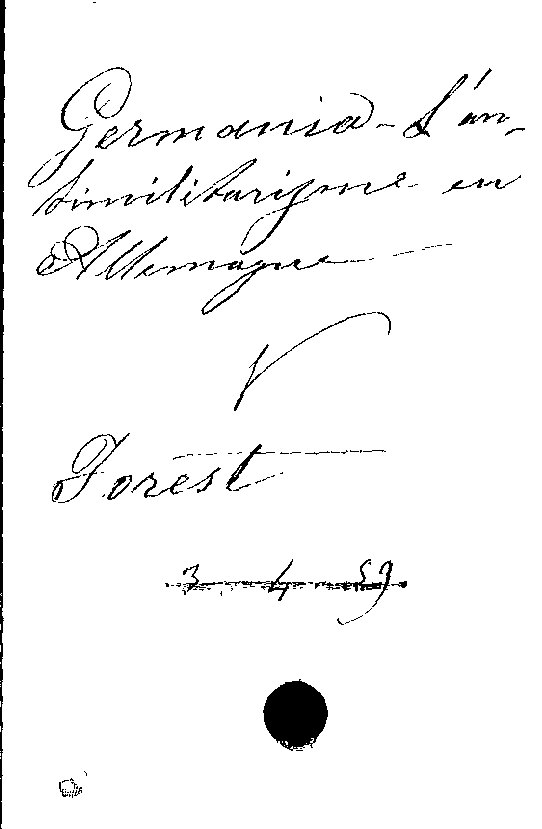 Germania - L'an-
timilitarisme en
Allemagne -
V
Forest
3 4 59